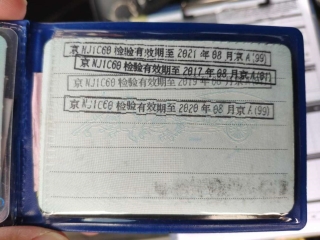 京NJ1C60 检验有效期至2021年08月京A(99)
京NJ1C60 检验有效期至2017年08月京A(01)
京NJ1C60 检验有效期至2019年08月京A(99)
京NJ1C60 检验有效期至2020年08月京A(99)